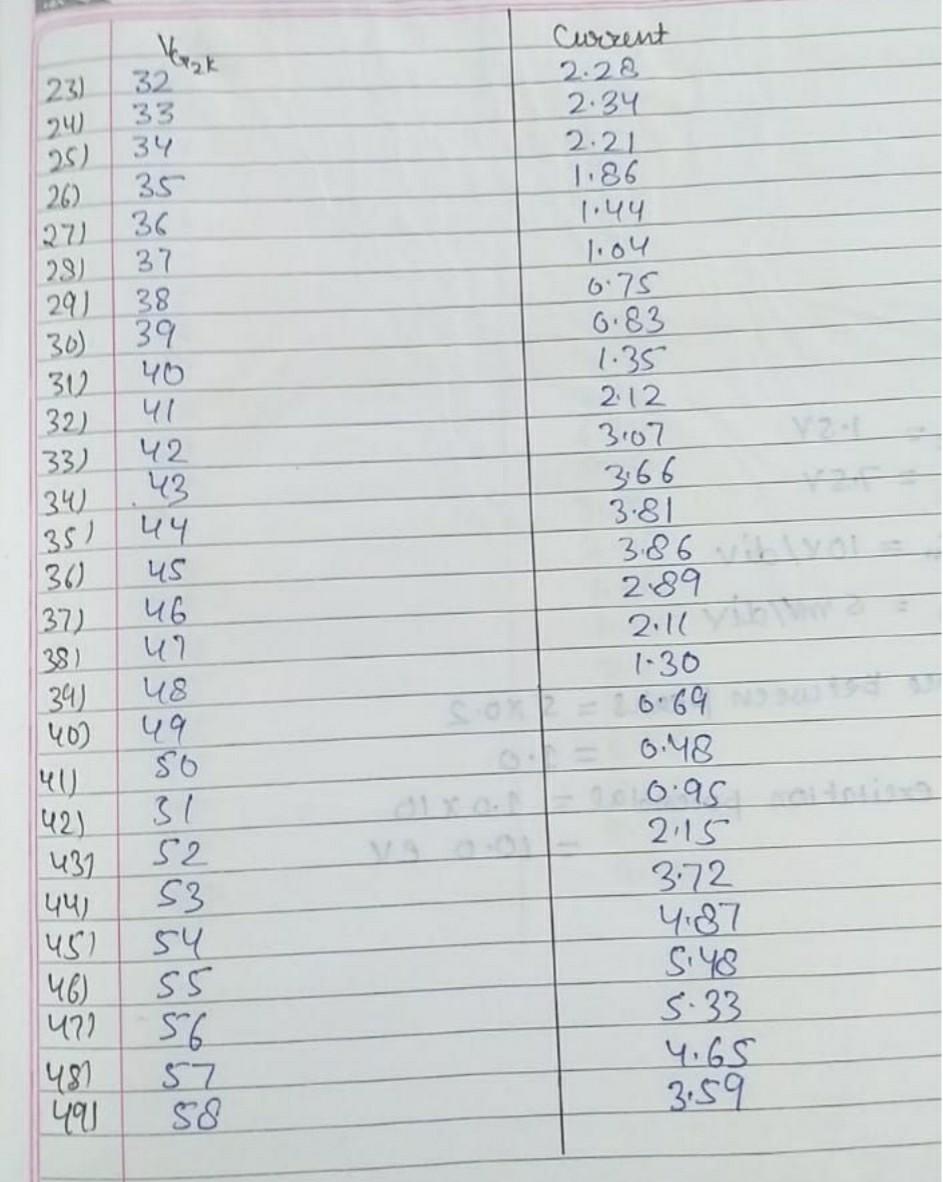 V_G2K Current
23) 32 2.28
24) 33 2.34
25) 34 2.21
26) 35 1.86
27) 36 1.44
28) 37 1.04
29) 38 0.75
30) 39 0.83
31) 40 1.35
32) 41 2.12
33) 42 3.07
34) 43 3.66
35) 44 3.81
36) 45 3.86
37) 46 2.89
38) 47 2.11
39) 48 1.30
40) 49 0.69
41) 50 0.48
42) 31 0.95
43) 52 2.15
44) 53 3.72
45) 54 4.87
46) 55 5.48
47) 56 5.33
48) 57 4.65
49) 58 3.59